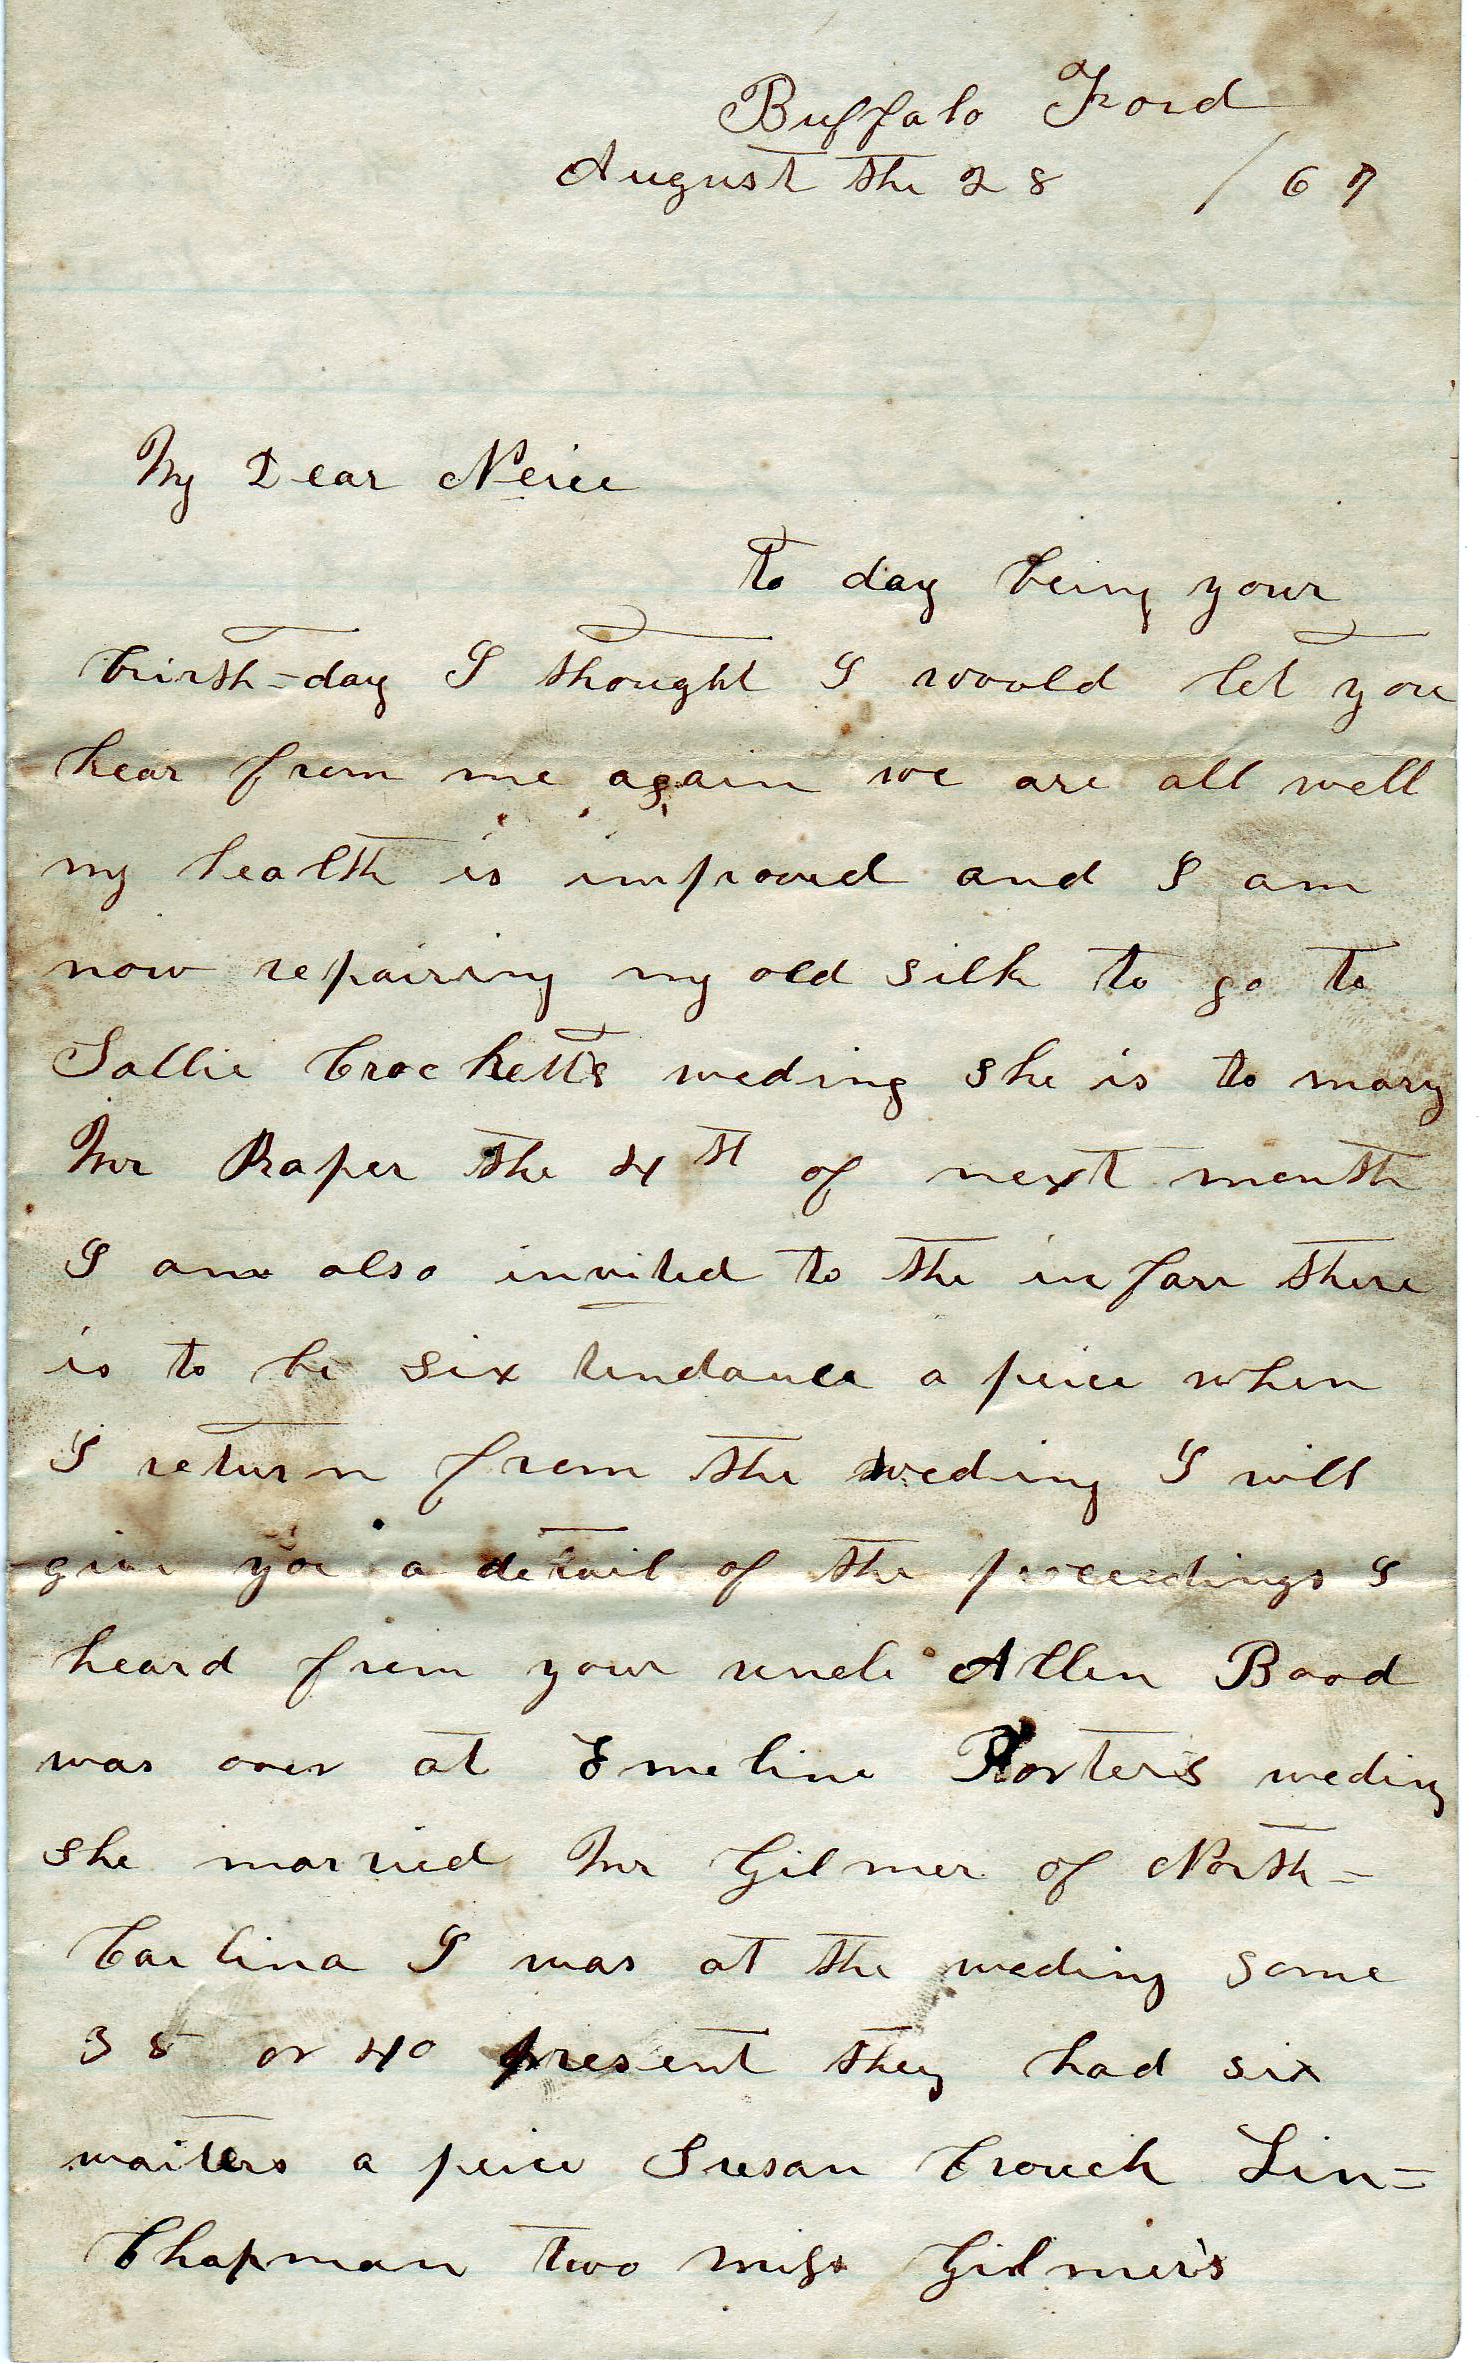 Buffalo Ford
August the 28 / 67
My Dear Neice
to day being your
birth=day I thought I would let you
hear from me again we are all well
my health is improved and I am
now repairing my old silk to go to
Sallie Crocketts weding she is to mary
Mr Raper the 4th of next month
I am also invited to the infare there
is to be six tendance a peice when
I return from the weding I will
give you a detail of the proceedings I
heard from your uncle Allen Bood
was over at Emeline Porters weding
she married Mr Gilmer of North=
Carlina I was at the weding some
35 or 40 present they had six
waiters a peice Susan Crouch Lin=
Chapman two miss Gilmer's